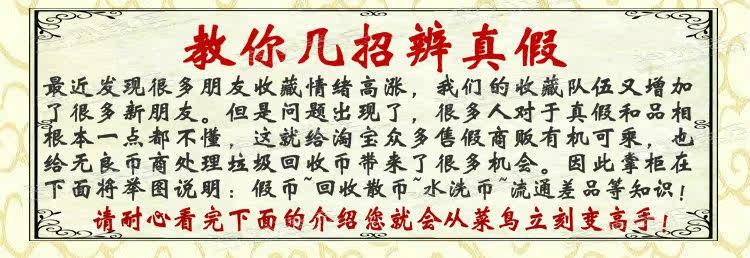 教你几招辨真假
最近发现很多朋友收藏情绪高涨，我们的收藏队伍又增加
了很多新朋友。但是问题出现了，很多人对于真假和品相
根本一点都不懂，这就给淘宝众多售假商贩有机可乘，也
给无良币商处理垃圾回收币带来了很多机会。因此掌柜在
下面将举图说明：假币~回收散币~水洗币~流通差品等知识！
请耐心看完下面的介绍您就会从菜鸟立刻变高手！